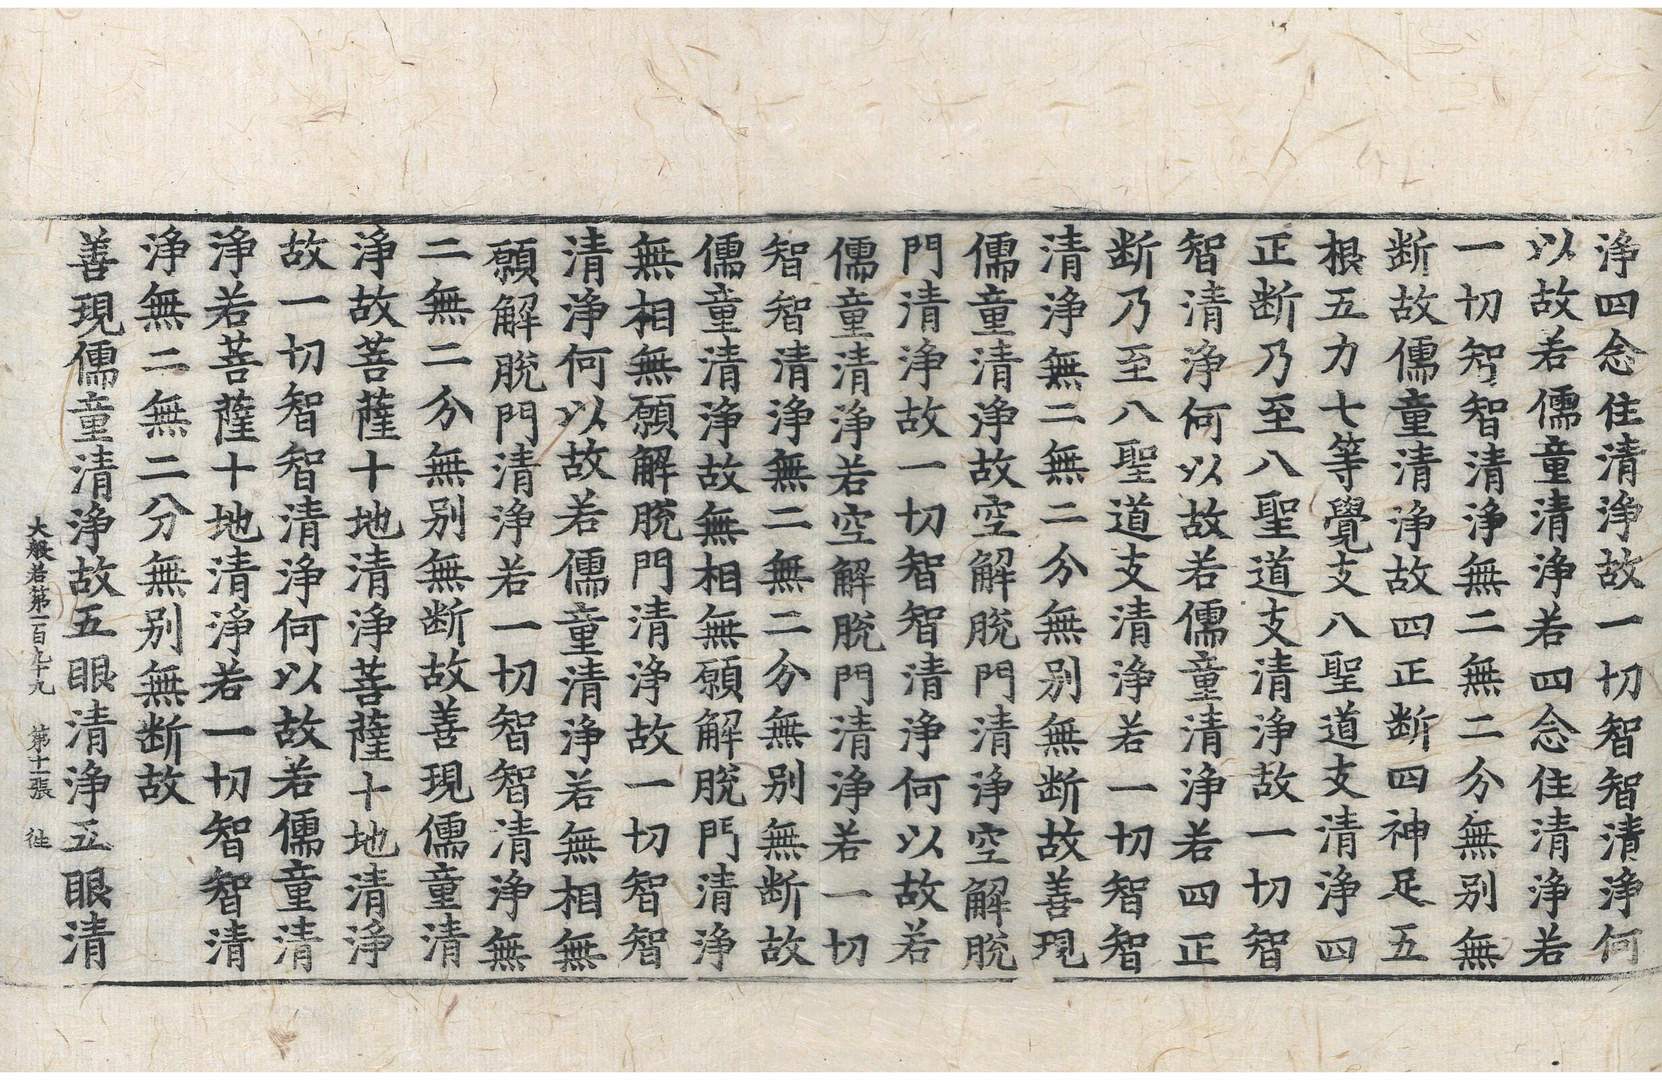 淨四念住清淨故一切智智清淨何
以故若儒童清淨若四念住清淨若
一切智智清淨無二無二分無別無
断故儒童清淨故四正断四神足五
根五力七等覺支八聖道支清淨四
正断乃至八聖道支清淨故一切智
智清淨何以故若儒童清淨若四正
断乃至八聖道支清淨若一切智智
清淨無二無二分無別無断故善現
儒童清淨故空解脫門清淨空解脫
門清淨故一切智智清淨何以故若
儒童清淨若空解脫門清淨若一切
智智清淨無二無二分無別無断故
儒童清淨故無相無願解脫門清淨
無相無願解脫門清淨故一切智智
清淨何以故若儒童清淨若無相無
願解脫門清淨若一切智智清淨無
二無二分無別無断故善現儒童清
淨故菩薩十地清淨菩薩十地清淨
故一切智智清淨何以故若儒童清
淨若菩薩十地清淨若一切智智清
淨無二無二分無別無断故
善現儒童清淨故五眼清淨五眼清
大般若第一百九十九 第十一張 徃